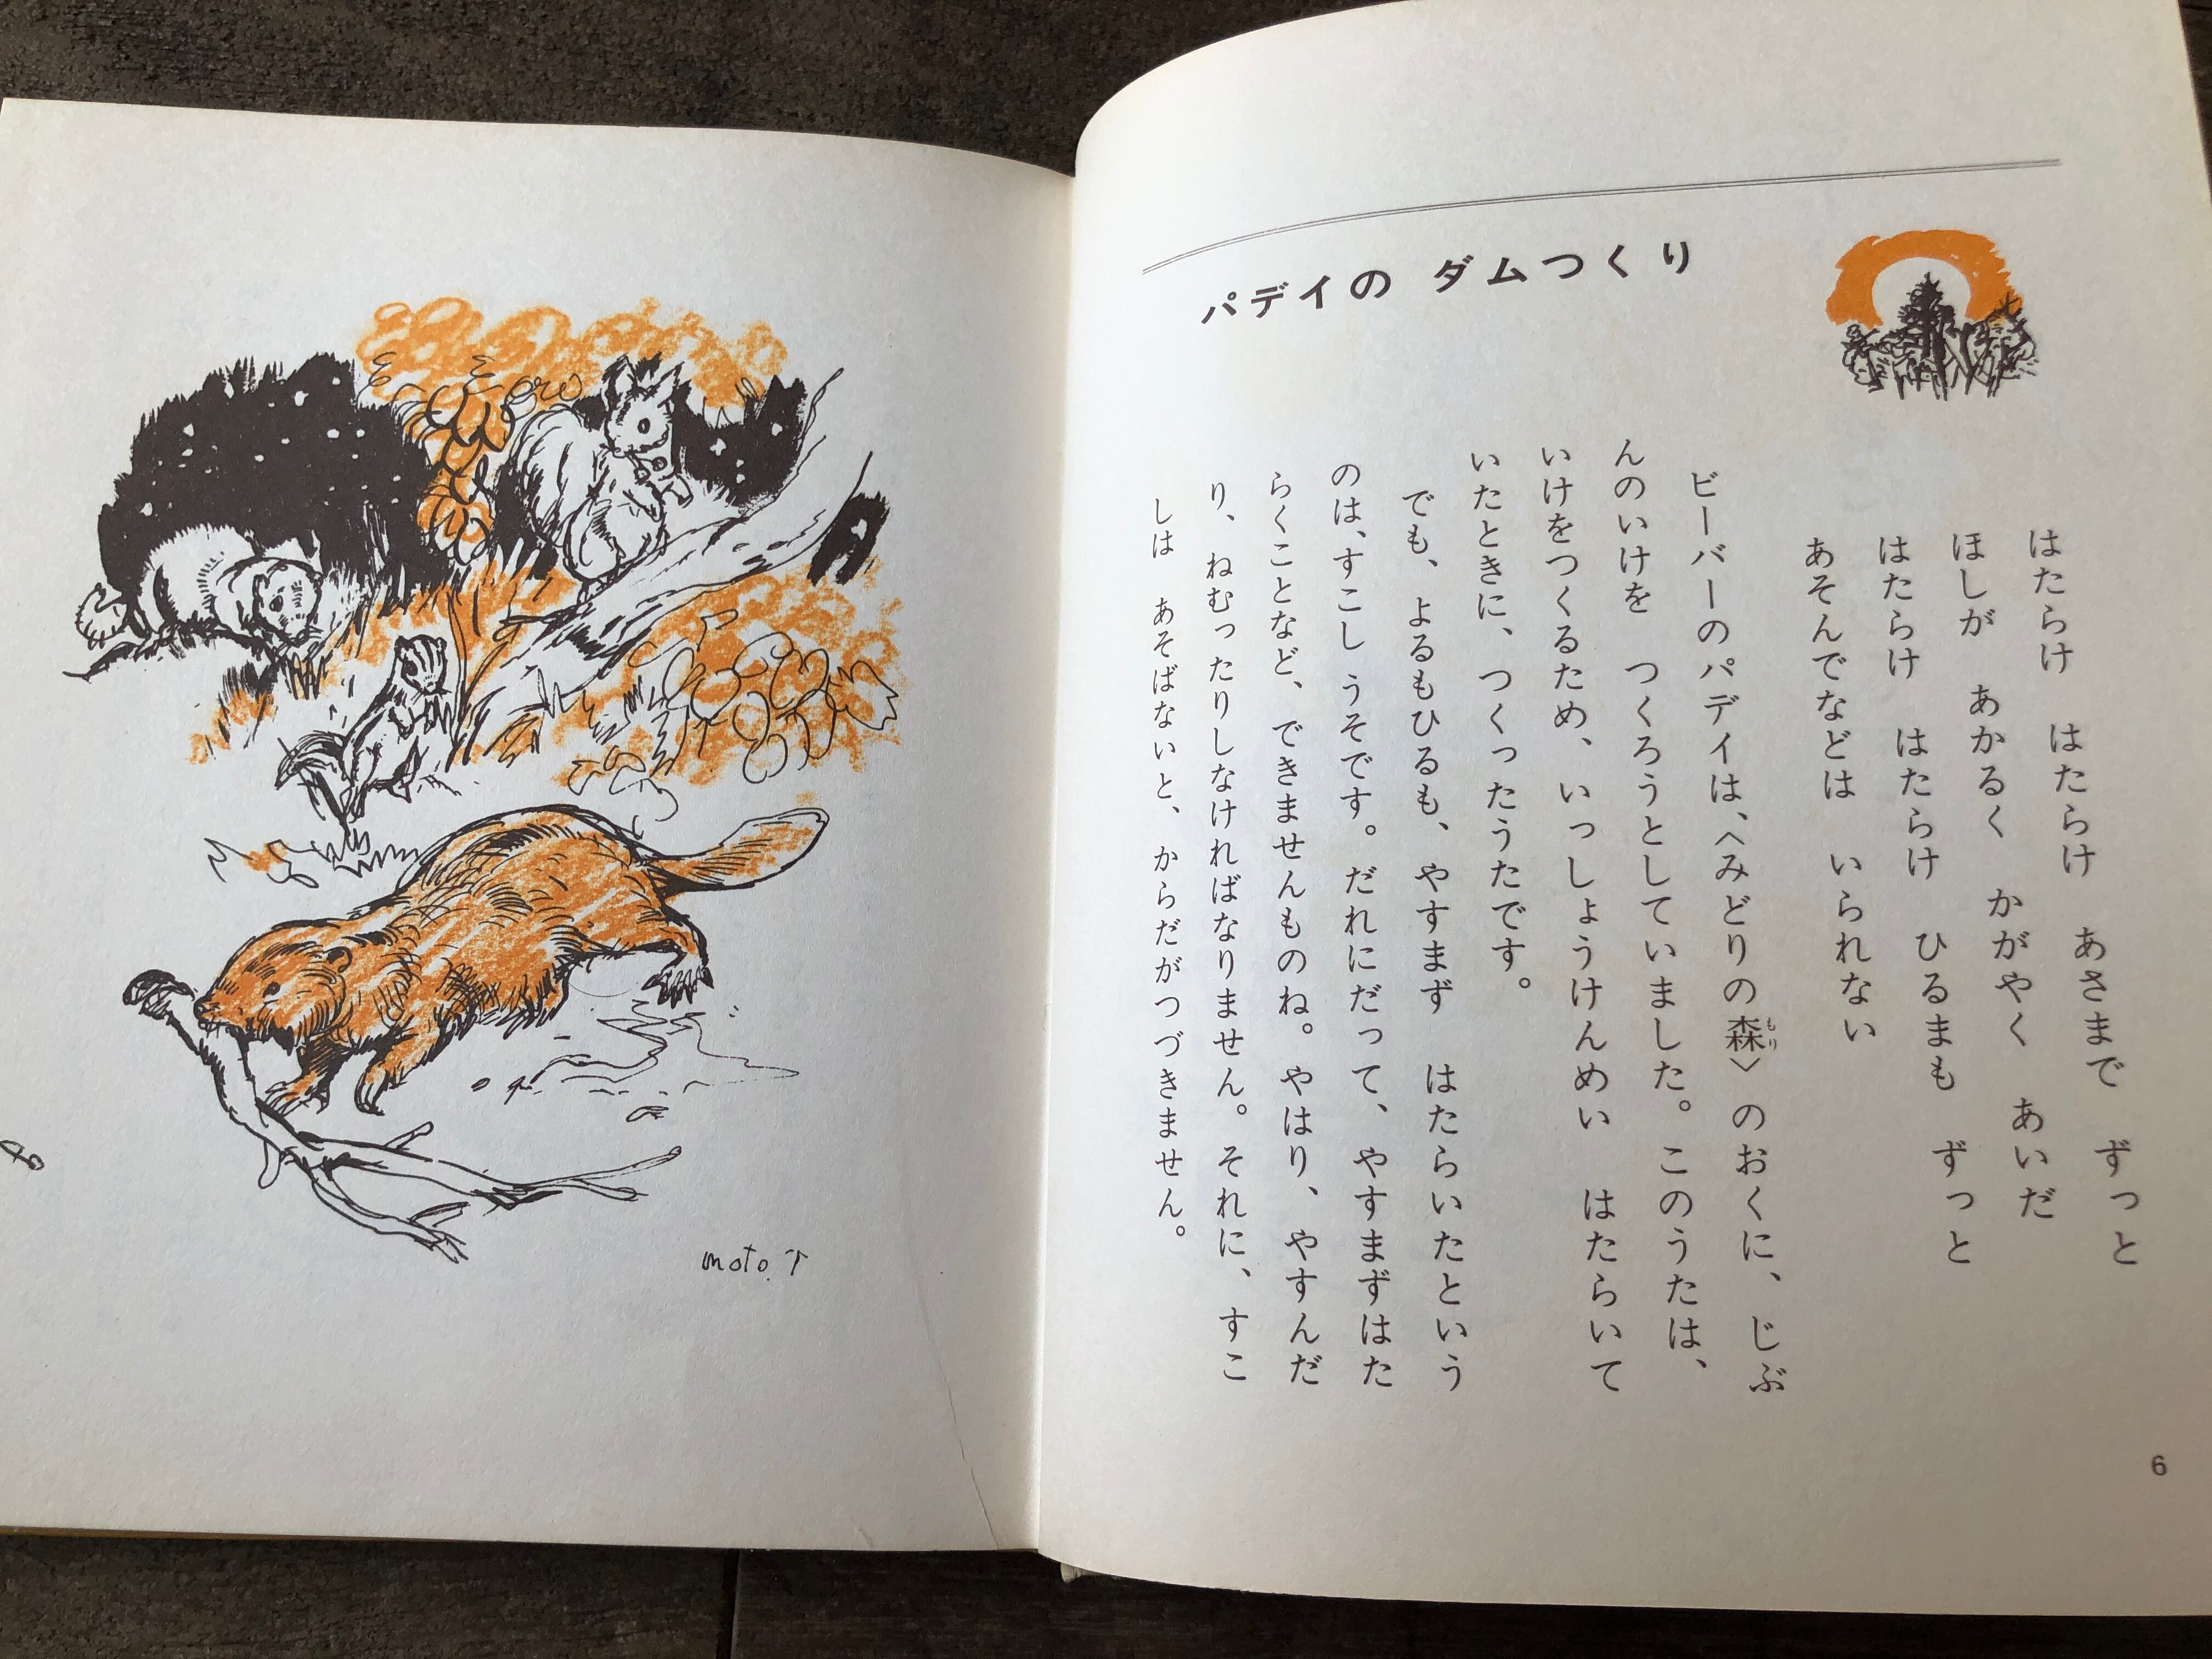 パデイの ダムつくり
はたらけ はたらけ あさまで ずっと
ほしが あかるく かがやく あいだ
はたらけ はたらけ ひるまも ずっと
あそんでなどは いられない
ビーバーのパデイは、〈みどりの森〉のおくに、じぶ
もり
んのいけを つくろうとしていました。このうたは、
いけをつくるため、いっしょうけんめい はたらいて
いたときに、つくったうたです。
でも、よるもひるも、やすまず はたらいたという
のは、すこし うそです。だれにだって、やすまずはた
らくことなど、できませんものね。やはり、やすんだ
り、ねむったりしなければなりません。それに、すこ
しは あそばないと、からだがつづきません。
6
moto.T